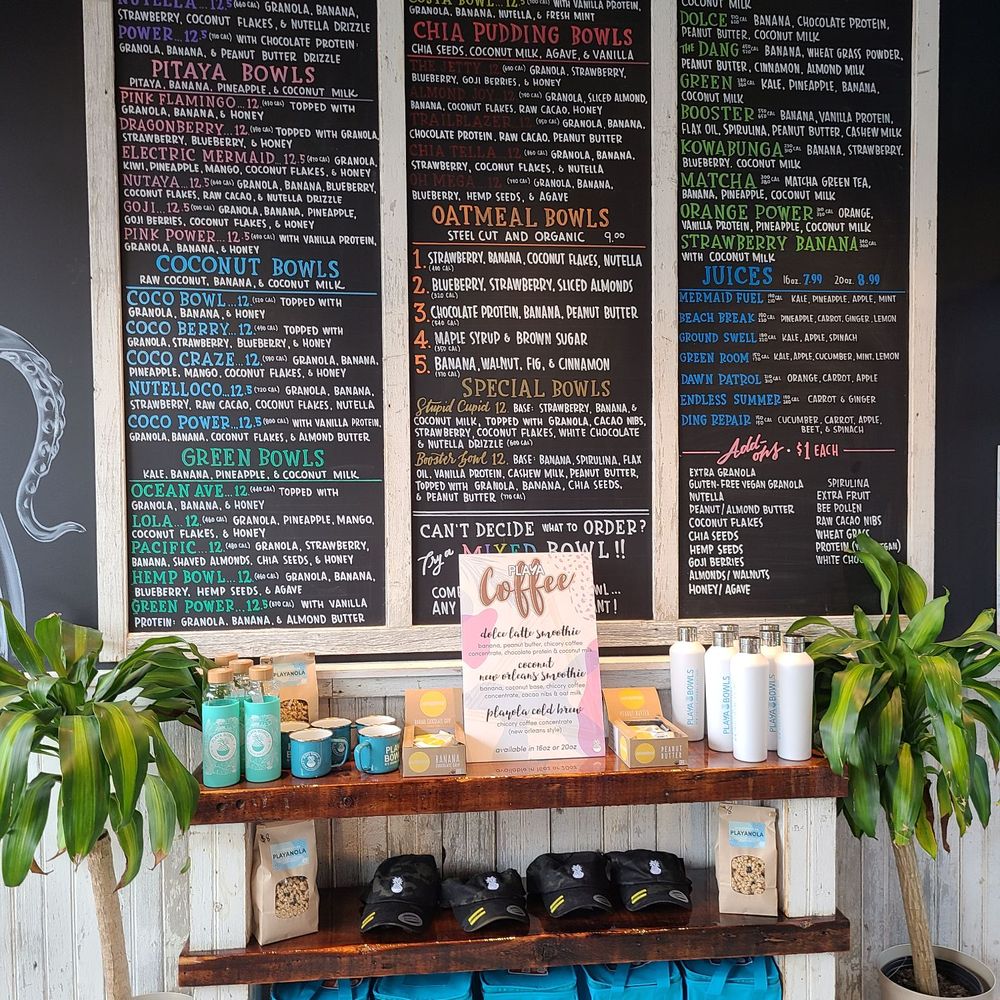 NUTELLA...12.5 GRANOLA, BANANA,
STRAWBERRY, COCONUT FLAKES, & NUTELLA DRIZZLE
POWER...12.5 (710 CAL) WITH CHOCOLATE PROTEIN:
GRANOLA, BANANA, & PEANUT BUTTER DRIZZLE
PITAYA BOWLS
PITAYA, BANANA, PINEAPPLE, & COCONUT MILK
PINK FLAMINGO...12 TOPPED WITH
GRANOLA, BANANA, & HONEY
DRAGONBERRY...12 TOPPED WITH GRANOLA,
STRAWBERRY, BLUEBERRY, & HONEY
ELECTRIC MERMAID...12.5 GRANOLA,
KIWI, PINEAPPLE, MANGO, COCONUT FLAKES, & HONEY
NUTAYA...12.5 GRANOLA, BANANA, BLUEBERRY,
COCONUT FLAKES, RAW CACAO, & NUTELLA DRIZZLE
GOJI...12.5 GRANOLA, BANANA, PINEAPPLE,
GOJI BERRIES, COCONUT FLAKES, & HONEY
PINK POWER...12.5 WITH VANILLA PROTEIN,
GRANOLA, BANANA, & HONEY
COCONUT BOWLS
RAW COCONUT, BANANA, & COCONUT MILK
COCO BOWL...12 (520 CAL) TOPPED WITH
GRANOLA, BANANA, & HONEY
COCO BERRY...12 TOPPED WITH
GRANOLA, STRAWBERRY, BLUEBERRY, & HONEY
COCO CRAZE...12 GRANOLA, BANANA,
PINEAPPLE, MANGO, COCONUT FLAKES, & HONEY
NUTELLOCO...12.5 (720 CAL) GRANOLA, BANANA,
STRAWBERRY, RAW CACAO, COCONUT FLAKES, & NUTELLA
COCO POWER...12.5 WITH VANILLA PROTEIN,
GRANOLA, BANANA, COCONUT FLAKES, & ALMOND BUTTER
GREEN BOWLS
KALE, BANANA, PINEAPPLE, & COCONUT MILK
OCEAN AVE...12 TOPPED WITH
GRANOLA, BANANA, & HONEY
LOLA...12 GRANOLA, PINEAPPLE, MANGO,
COCONUT FLAKES, & HONEY
PACIFIC...12 GRANOLA, STRAWBERRY,
BANANA, SHAVED ALMONDS, CHIA SEEDS, & HONEY
HEMP BOWL...12 GRANOLA, BANANA,
BLUEBERRY, HEMP SEEDS, & AGAVE
GREEN POWER...12.5 WITH VANILLA
PROTEIN: GRANOLA, BANANA, & ALMOND BUTTER
COSTA BOWL...12.5 WITH VANILLA PROTEIN,
GRANOLA, BANANA, NUTELLA, & FRESH MINT
CHIA PUDDING BOWLS
CHIA SEEDS, COCONUT MILK, AGAVE, & VANILLA
THE JETTY 12 GRANOLA, STRAWBERRY,
BLUEBERRY, GOJI BERRIES, & HONEY
ALMOND JOY 12 GRANOLA, SLICED ALMOND,
BANANA, COCONUT FLAKES, RAW CACAO, HONEY
TRAILBLAZER 12 GRANOLA, BANANA,
CHOCOLATE PROTEIN, RAW CACAO, PEANUT BUTTER
CHIA TELLA...12 GRANOLA, BANANA,
STRAWBERRY, COCONUT FLAKES, & NUTELLA
OH MEGA...12 GRANOLA, BANANA,
BLUEBERRY, HEMP SEEDS, & AGAVE
OATMEAL BOWLS
STEEL CUT AND ORGANIC 9.00
1. STRAWBERRY, BANANA, COCONUT FLAKES, NUTELLA
2. BLUEBERRY, STRAWBERRY, SLICED ALMONDS
(320 CAL)
3. CHOCOLATE PROTEIN, BANANA, PEANUT BUTTER
4. MAPLE SYRUP & BROWN SUGAR
(350 CAL)
5. BANANA, WALNUT, FIG, & CINNAMON
SPECIAL BOWLS
Stupid Cupid 12. BASE: STRAWBERRY, BANANA, &
COCONUT MILK, TOPPED WITH GRANOLA, CACAO NIBS,
STRAWBERRY, COCONUT FLAKES, WHITE CHOCOLATE
& NUTELLA DRIZZLE
Booster Bowl 12. BASE: BANANA, SPIRULINA, FLAX
OIL, VANILLA PROTEIN, CASHEW MILK, PEANUT BUTTER,
TOPPED WITH GRANOLA, BANANA, CHIA SEEDS,
& PEANUT BUTTER (770 CAL)
CAN'T DECIDE WHAT TO ORDER?
Try a MIXED BOWL!!
ANY
COCONUT MILK
DOLCE BANANA, CHOCOLATE PROTEIN,
PEANUT BUTTER, COCONUT MILK
THE DANG BANANA, WHEAT GRASS POWDER,
PEANUT BUTTER, CINNAMON, ALMOND MILK
GREEN KALE, PINEAPPLE, BANANA,
COCONUT MILK
BOOSTER BANANA, VANILLA PROTEIN,
FLAX OIL, SPIRULINA, PEANUT BUTTER, CASHEW MILK
KOWABUNGA BANANA, STRAWBERRY,
BLUEBERRY, COCONUT MILK
MATCHA MATCHA GREEN TEA,
BANANA, PINEAPPLE, COCONUT MILK
ORANGE POWER ORANGE,
VANILLA PROTEIN, PINEAPPLE, COCONUT MILK
STRAWBERRY BANANA
WITH COCONUT MILK
JUICES 16oz 7.99 20oz. 8.99
MERMAID FUEL KALE, PINEAPPLE, APPLE, MINT
BEACH BREAK PINEAPPLE, CARROT, GINGER, LEMON
GROUND SWELL KALE, APPLE, SPINACH
GREEN ROOM KALE, APPLE, CUCUMBER, MINT, LEMON
DAWN PATROL ORANGE, CARROT, APPLE
ENDLESS SUMMER CARROT & GINGER
DING REPAIR CUCUMBER, CARROT, APPLE,
BEET, & SPINACH
Add-ons • $1 EACH
EXTRA GRANOLA
GLUTEN-FREE VEGAN GRANOLA
NUTELLA
PEANUT/ALMOND BUTTER
COCONUT FLAKES
CHIA SEEDS
HEMP SEEDS
GOJI BERRIES
ALMONDS/WALNUTS
HONEY/AGAVE
SPIRULINA
EXTRA FRUIT
BEE POLLEN
RAW CACAO NIBS
WHEAT GRASS
PROTEIN
WHITE
PLAYA
Coffee
dolce latte smoothie
banana, peanut butter, chicory coffee
concentrate, chocolate protein & coconut milk
coconut
new orleans smoothie
banana, coconut base, chicory coffee
concentrate, cacao nibs & oat milk
playola cold brew
chicory coffee concentrate
(new orleans style)
available in 16oz or 20oz
BANANA
CHOCOLATE CHIP
PEANUT
BUTTER
PLAYA BOWLS
PLAYA BOWLS
PLAYA BOWLS
PLAYANOLA
PLAYANOLA